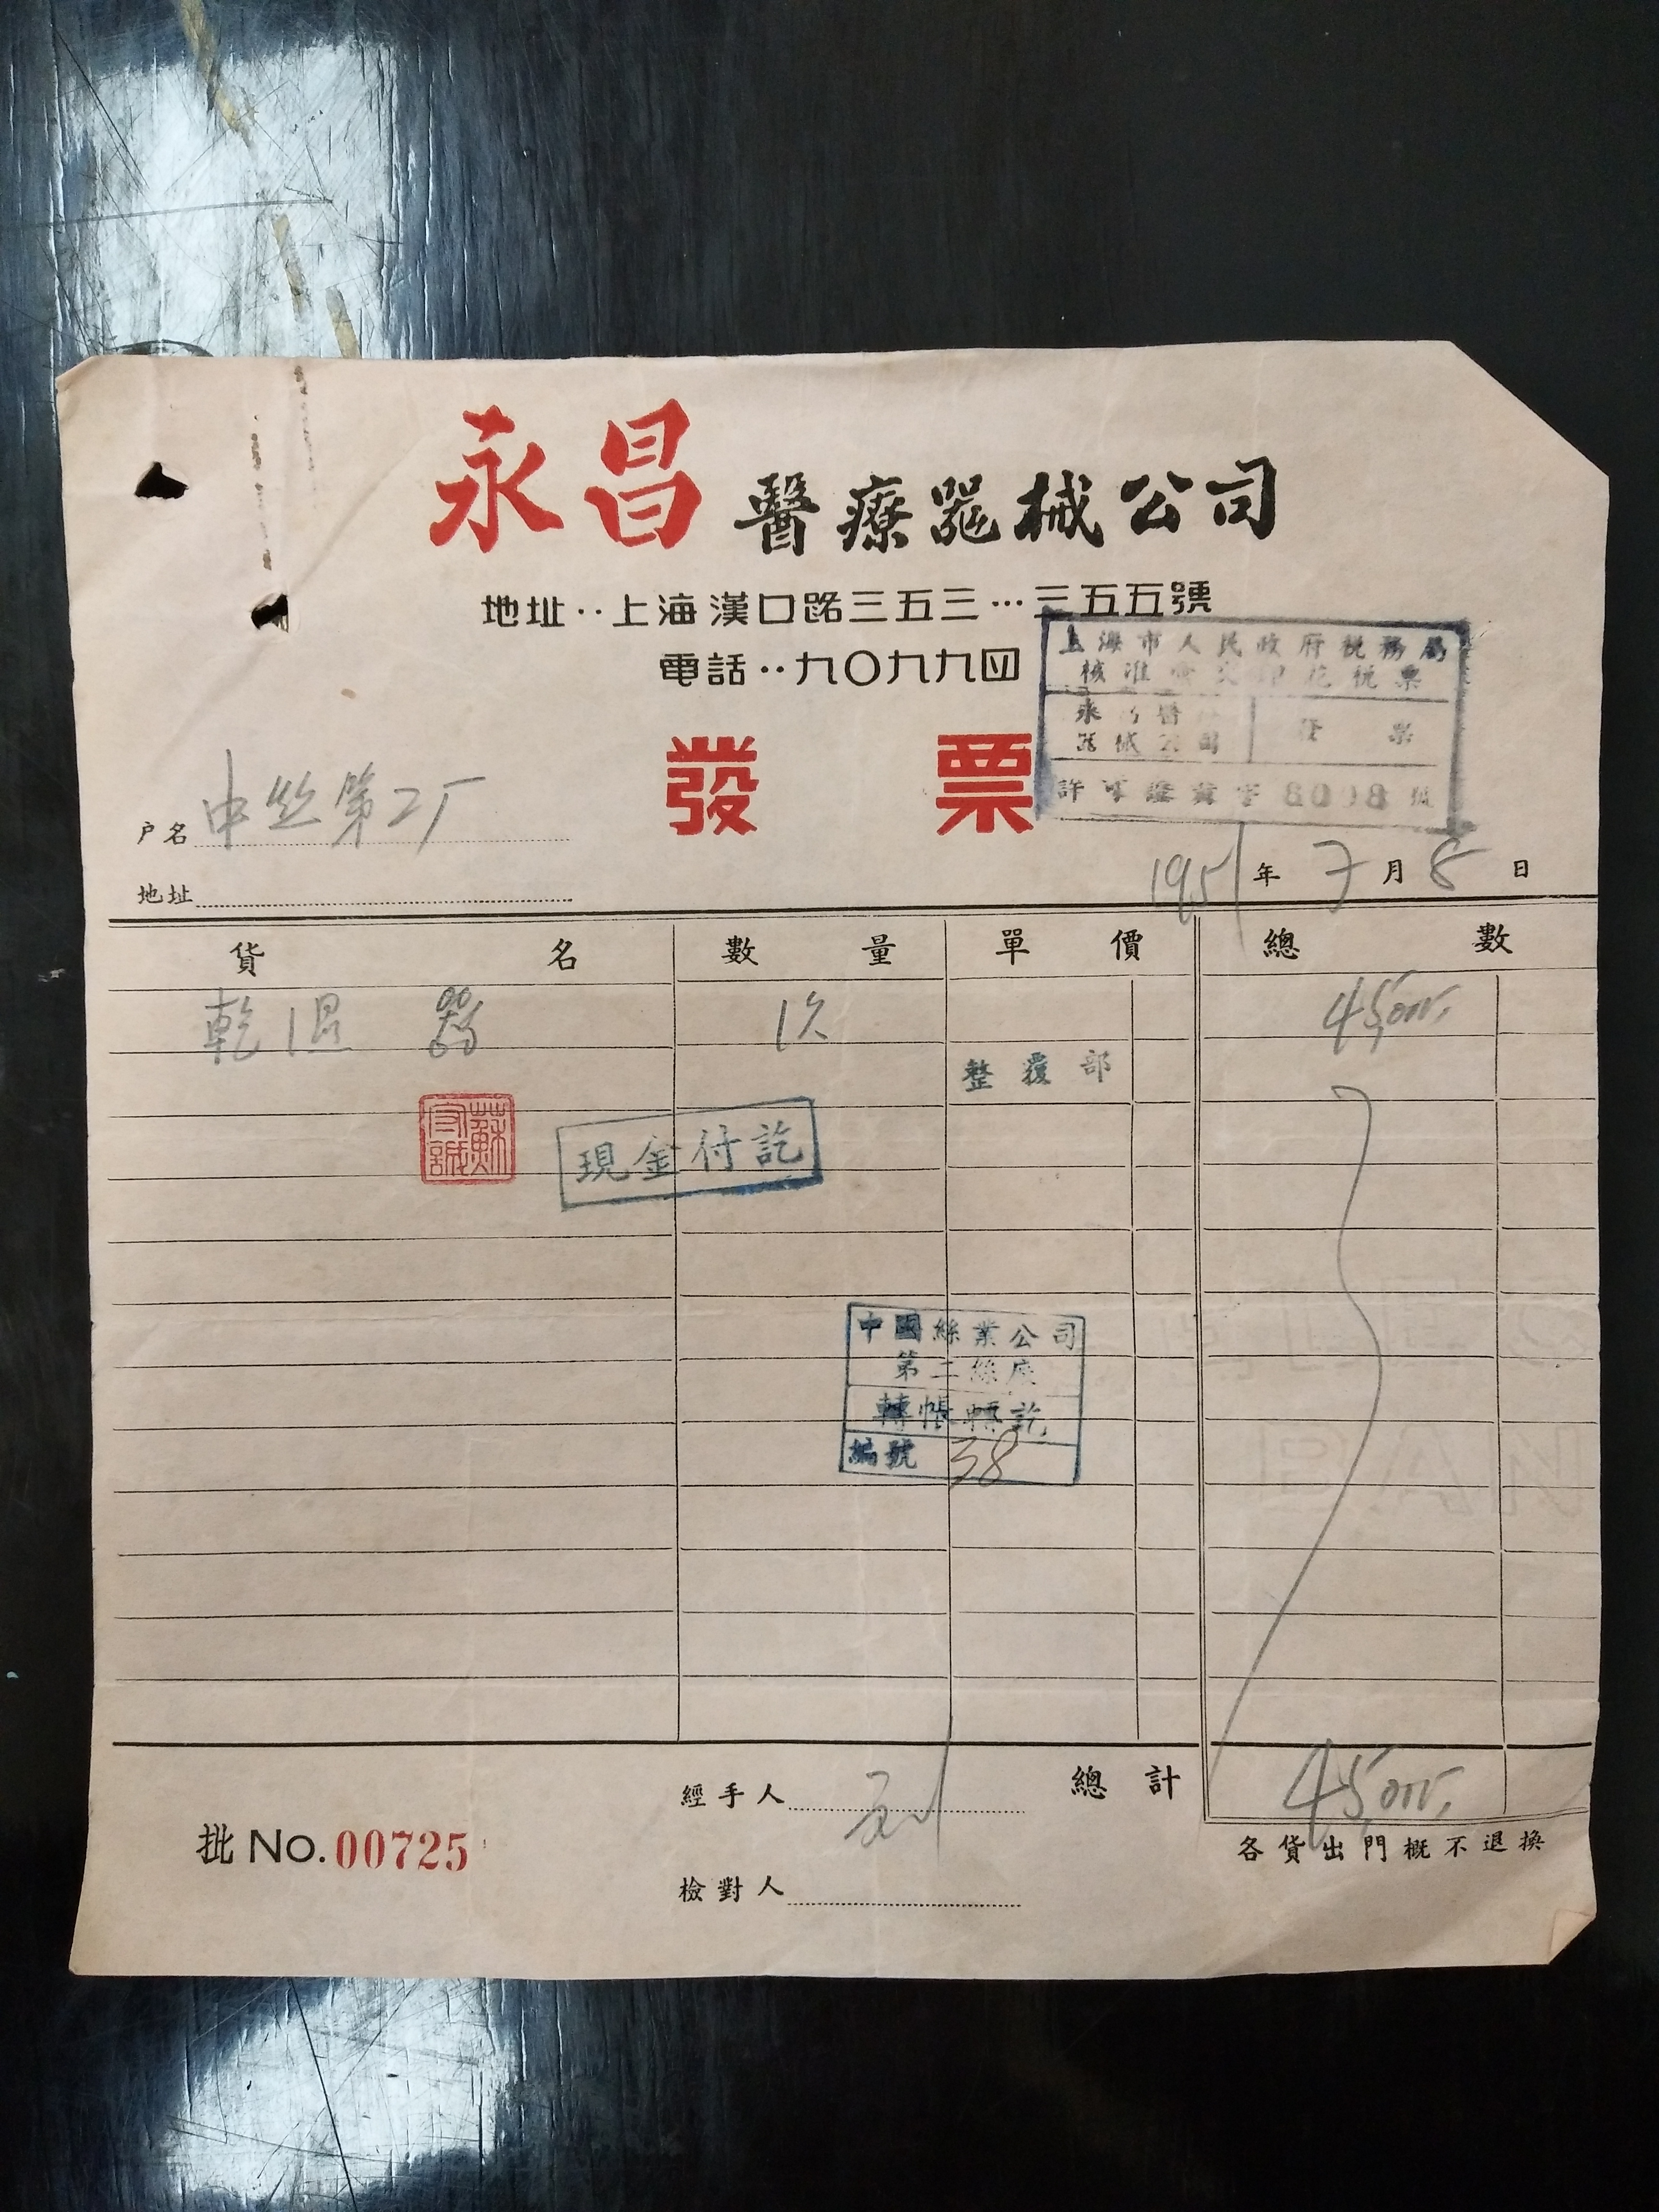 永昌醫療器械公司
地址··上海漢口路三五三…三五五號
電話··九〇九九四
上海市人民政府稅務局
核准 花稅票
永昌醫
器械公司 發票
許可證 字 8098 號
發票
户名 中丝第二厂
地址
1951年7月8日
貨名 數量 單價 總數
乾溫器 1次 45,000.
整覆部
蘇守誠
現金付訖
中國絲業公司
第二絲廠
轉帳轉訖
編號 38
經手人 總計 45,000.
批No.00725
各貨出門概不退換
檢對人